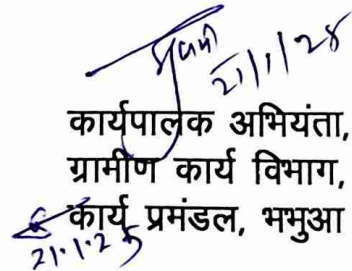 21/1/25
कार्यपालक अभियंता,
ग्रामीण कार्य विभाग,
कार्य प्रमंडल, भभुआ
21.1.25